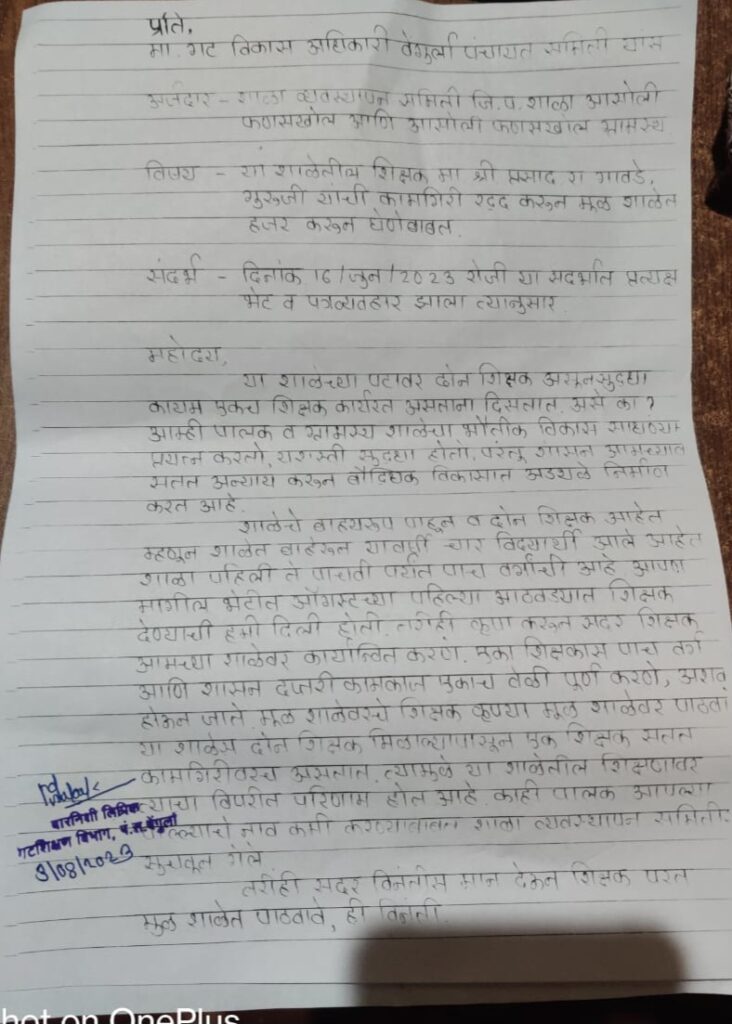 प्रति,
मा. गट विकास अधिकारी वेंगुर्ला पंचायत समिती यास
अर्जदार - शाळा व्यवस्थापन समिती जि.प. शाळा आसोली
फणसखोल आणि आसोली फणसखोल ग्रामस्थ
विषय - या शाळेतील शिक्षक मा श्री प्रसाद रा गावडे,
गुरुजी यांची कामगिरी रद्द करून मूळ शाळेत
हजर करून घेणेबाबत.
संदर्भ - दिनांक 16/जुन/2023 रोजी या संदर्भात प्रत्यक्ष
भेट व पत्रव्यवहार झाला त्यानुसार
महोदय,
या शाळेच्या पटावर दोन शिक्षक असूनसुद्धा
कायम एकच शिक्षक कार्यरत असताना दिसतात. असे का?
आम्ही पालक व ग्रामस्थ शाळेचा भौतीक विकास साधण्या
प्रयत्न करतो, यशस्वी सुद्धा होतो. परंतू शासन आमच्यात
सतत अन्याय करून बौद्धिक विकासात अडथळे निर्माण
करत आहे.
शाळेचे बाह्यरूप पाहून व दोन शिक्षक आहेत
म्हणून शाळेत बाहेरून यावर्षी चार विद्यार्थी आले आहेत
शाळा पहिली ते पाचवी पर्यंत पाच वर्गांची आहे आपण
मागील भेटीत ऑगस्टच्या पहिल्या आठवड्यात शिक्षक
देण्याची हमी दिली होती. तरीही कृपा करून सदर शिक्षक
आमच्या शाळेवर कार्यान्वित करणे. एका शिक्षकास पाच वर्ग
आणि शासन दप्तरी कामकाज एकाच वेळी पूर्ण करणे, अशक्
होऊन जाते. मूळ शाळेवरचे शिक्षक कृपया मूळ शाळेवर पाठवा
या शाळेस दोन शिक्षक मिळाल्यापासून एक शिक्षक सतत
कामगिरीवरच असतात. त्यामुळे या शाळेतील शिक्षणावर
त्याचा विपरीत परिणाम होत आहे. काही पालक आपल्या
नाव कमी करण्याबाबत शाळा व्यवस्थापन समिती
सुचवून गेले
तरीही सदर विनंतीस मान देऊन शिक्षक परत
मूळ शाळेत पाठवावे, ही विनंती.
बारनिशी लिपिक
गटशिक्षण विभाग, पं.स. वेंगुर्ला
3/08/2023
hot on OnePlus